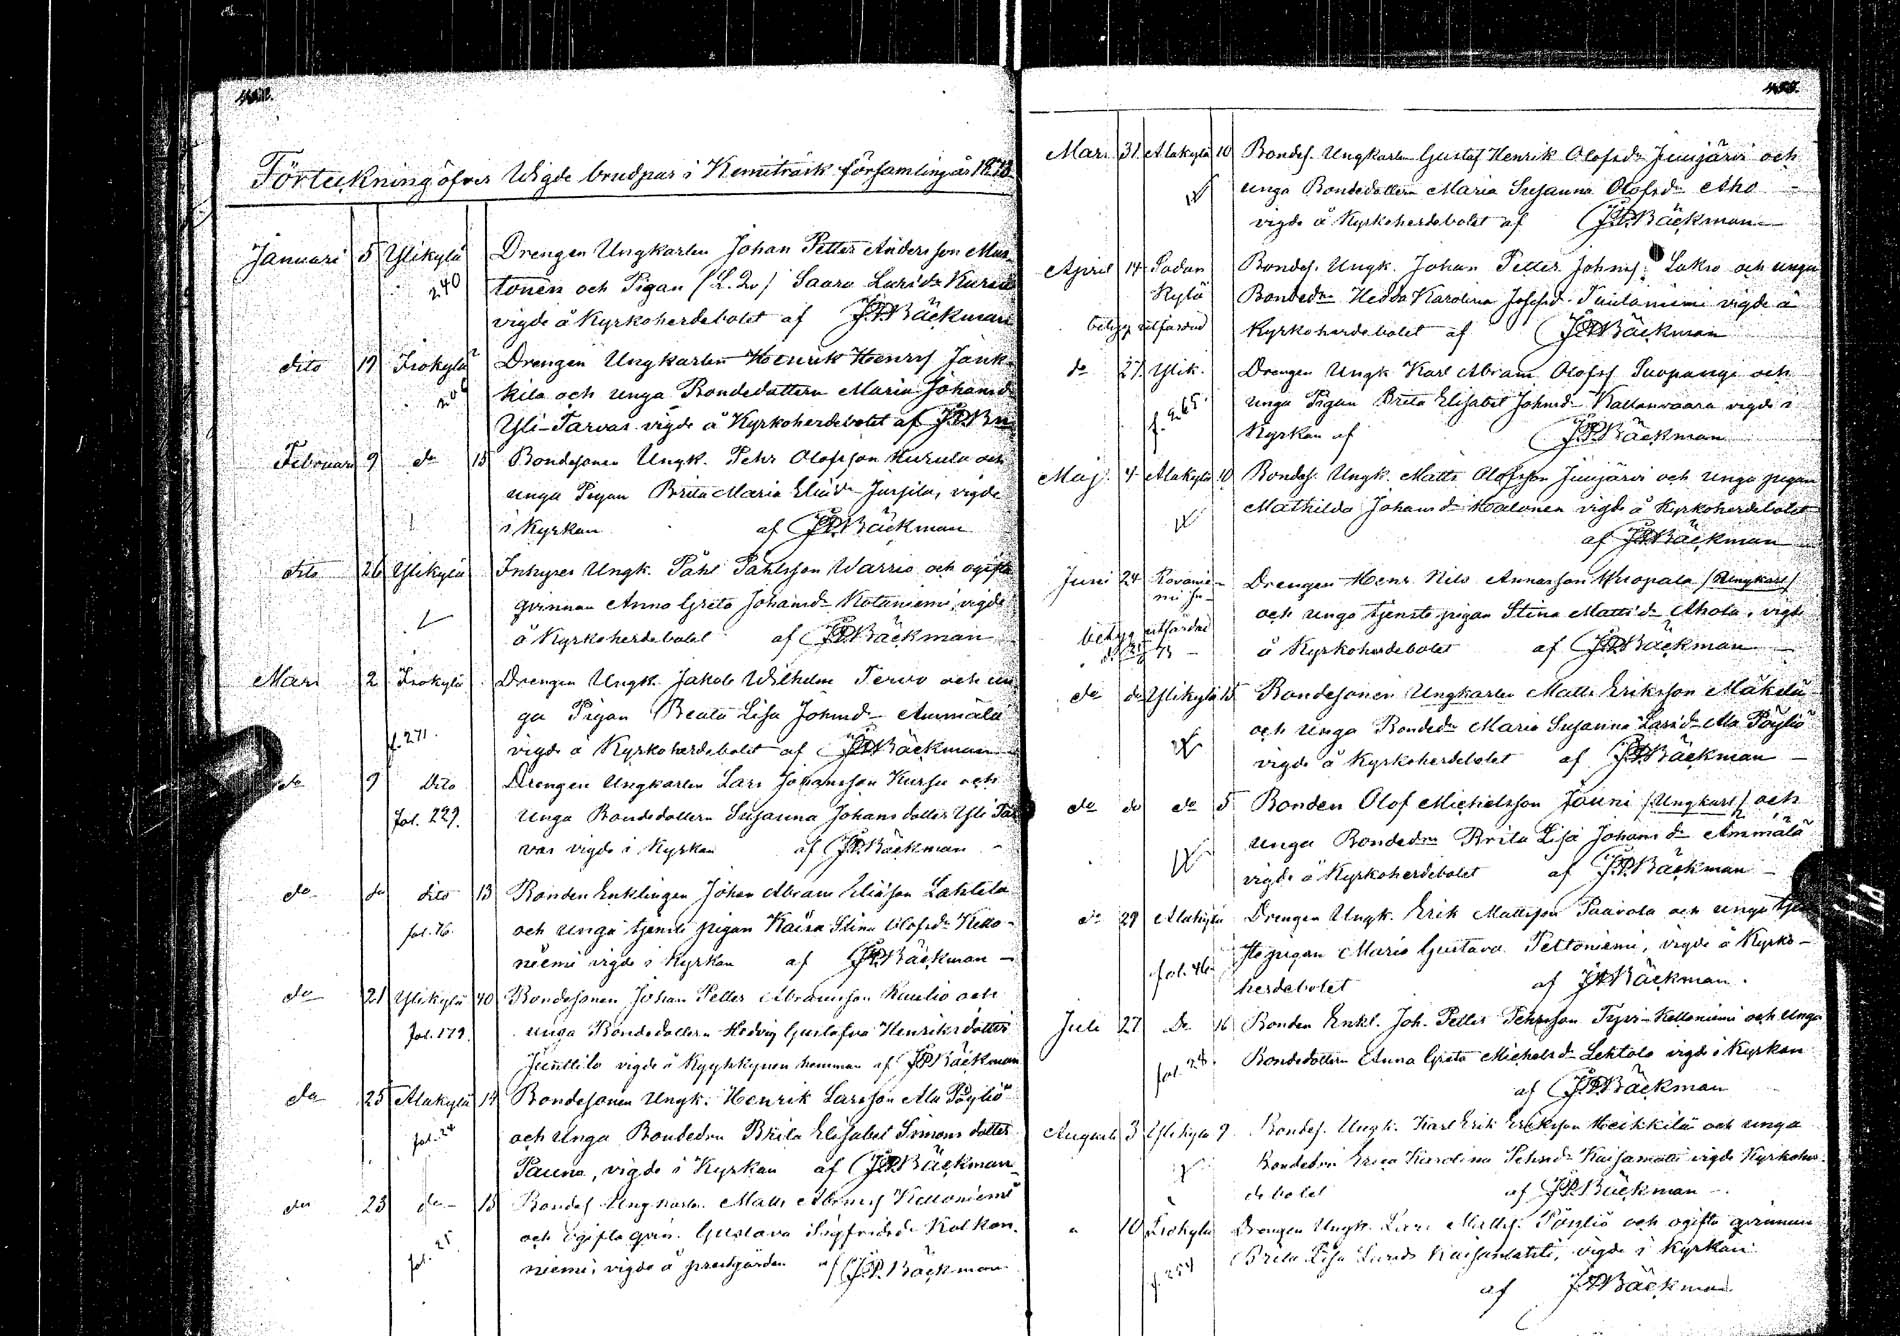 Förteckning öfver Wigde brudpar i Kemiträsk församling år 1873
Januari 5 Ylikylä Drengen Ungkarlen Johan Petter Andersson Mus-
240 tonen och Pigan (L. 2v) Saara Larsdr
vigde å Kyrkoherdebolet af J.P. Bäckman
dito 19 Isokylä Drengen Ungkarlen Henrik Henrs. Jänk-
kilä och unga Bondedottern Maria Johansdr
Yli-Tarvas vigde å Kyrkoherdebolet af J.P. Bn
Februari 9 do 15 Bondesonen Ungk. Pehr Olofsson Kurula och
unga Pigan Brita Maria Eliadr vigde
i Kyrkan af J.P. Bäckman
dito 26 Ylikylä Inhyses Ungk. Påhl Påhlsson Warrio och ogifta
qvinnan Anna Greta Johansdr Kotaniemi, vigde
å Kyrkoherdebolet af J.P. Bäckman
Mars 2 Isokylä Drengen Ungk. Jakob Wilhelm Tervo och un
ga Pigan Beata Lisa Johansdr Ammälä
f. 271. vigde å Kyrkoherdebolet af J.P. Bäckman
do 9 Dito Drengen Ungkarlen Lars Johansson Kursu och
fol. 229. unga Bondedottern Susanna Johansdotter Yli Tar
vas vigde i Kyrkan af J.P. Bäckman
do do dito 13 Bonden Enklingen Johan Abram Eliasson Lahtela
fol. 76 och unga tjenste pigan Kaisa Stina Olofsdr Kello-
niemi vigde i Kyrkan af J.P. Bäckman
do 21 Ylikylä 40 Bondesonen Johan Petter Abramsson Kuelio och
fol. 179. unga Bondedottern Hedvig Gustafva Henriksdotter
Junttila vigde å hemman af J.P. Bäckman
do 25 Alakylä 14 Bondesonen Ungk. Henrik Larsson Ala Pöyliö
fol. 24 och unga Bondedrn Brita Elisabet Simonsdotter
Pauna, vigde i Kyrkan af J.P. Bäckman
do 23 do 15 Bondes. Ungkarlen Matts Abrams. Kelloniemi
och ogifta qvin. Gustava Sigfridsdr Kotkan-
fol. 25 niemi, vigde å prestgården af J.P. Bäckman
Mars 31 Alakylä 10 Bondes. Ungkarlen Gustaf Henrik Olofsdr Jumjärvi och
unga Bondedottern Maria Susanna Olofsdr Aho
vigde å Kyrkoherdebolet af J.P. Bäckman
April 14 Sodan Bondes. Ungk. Johan Petter Johns. Lakso och unga
Kylä Bondedrn Hedda Karolina Josefsd. vigde å
betyg utfärdad Kyrkoherdebolet af J.P. Bäckman
do 27. Ylik. Drengen Ungk Karl Abram Olofss Suopanga och
f. 265. unga Pigan Brita Elisabet Johnsdr Kallanvaara vigde i
Kyrkan af J.P. Bäckman
Maj. 4 Alakylä 10 Bondes. Ungk. Matts Olofsson Jumjärvi och unga pigan
Mathilda Johansdr Halonen vigde å Kyrkoherdebolet
af J.P. Bäckman
Juni 24 Rovanie- Drengen Henr. Nils Annasson Kuopala (Ungkarl)
mi och unga tjenste pigan Stina Mattsdr Ahola, vigde
betyg utfärdad å Kyrkoherdebolet af J.P. Bäckman
do do Ylikylä 15 Bondesonen Ungkarlen Matts Eriksson Mäkelä
och unga Bondedr Maria Susanna Larsdr Ala Pöyliö
vigde å Kyrkoherdebolet af J.P. Bäckman
do do do 5 Bonden Olof Michelsson Jouni (Ungkarl) och
unga Bondedrn Brita Lisa Johansdr Ämmälä
vigde å Kyrkoherdebolet af J.P. Bäckman
do 29 Alakylä Drengen Ungk. Erik Mattsson Paavola och unga tjen
fol. 46 stepigan Maria Gustava Peltoniemi, vigde å Kyrko-
herdebolet af J.P. Bäckman.
Juli 27 Do 16 Bonden Enkl. Joh. Petter Pehrsson Tyvi-Kelloniemi och unga
fol. 28. Bondedottern Anna Greta Michelsdr Lehtola vigde i Kyrkan
af J.P. Bäckman
Augusti 3 Ylikylä 9 Bondes. Ungk. Karl Erik Eriksson Heikkilä och unga
Bondedrn Erica Karolina vigde Kyrkoher
debolet af J.P. Bäckman
10 Isokylä Drengen Ungk. Lars Matts. Pöyliö och ogifta qvinnan
f. 254 Brita Lisa vigde i Kyrkan
af J.P. Bäckman